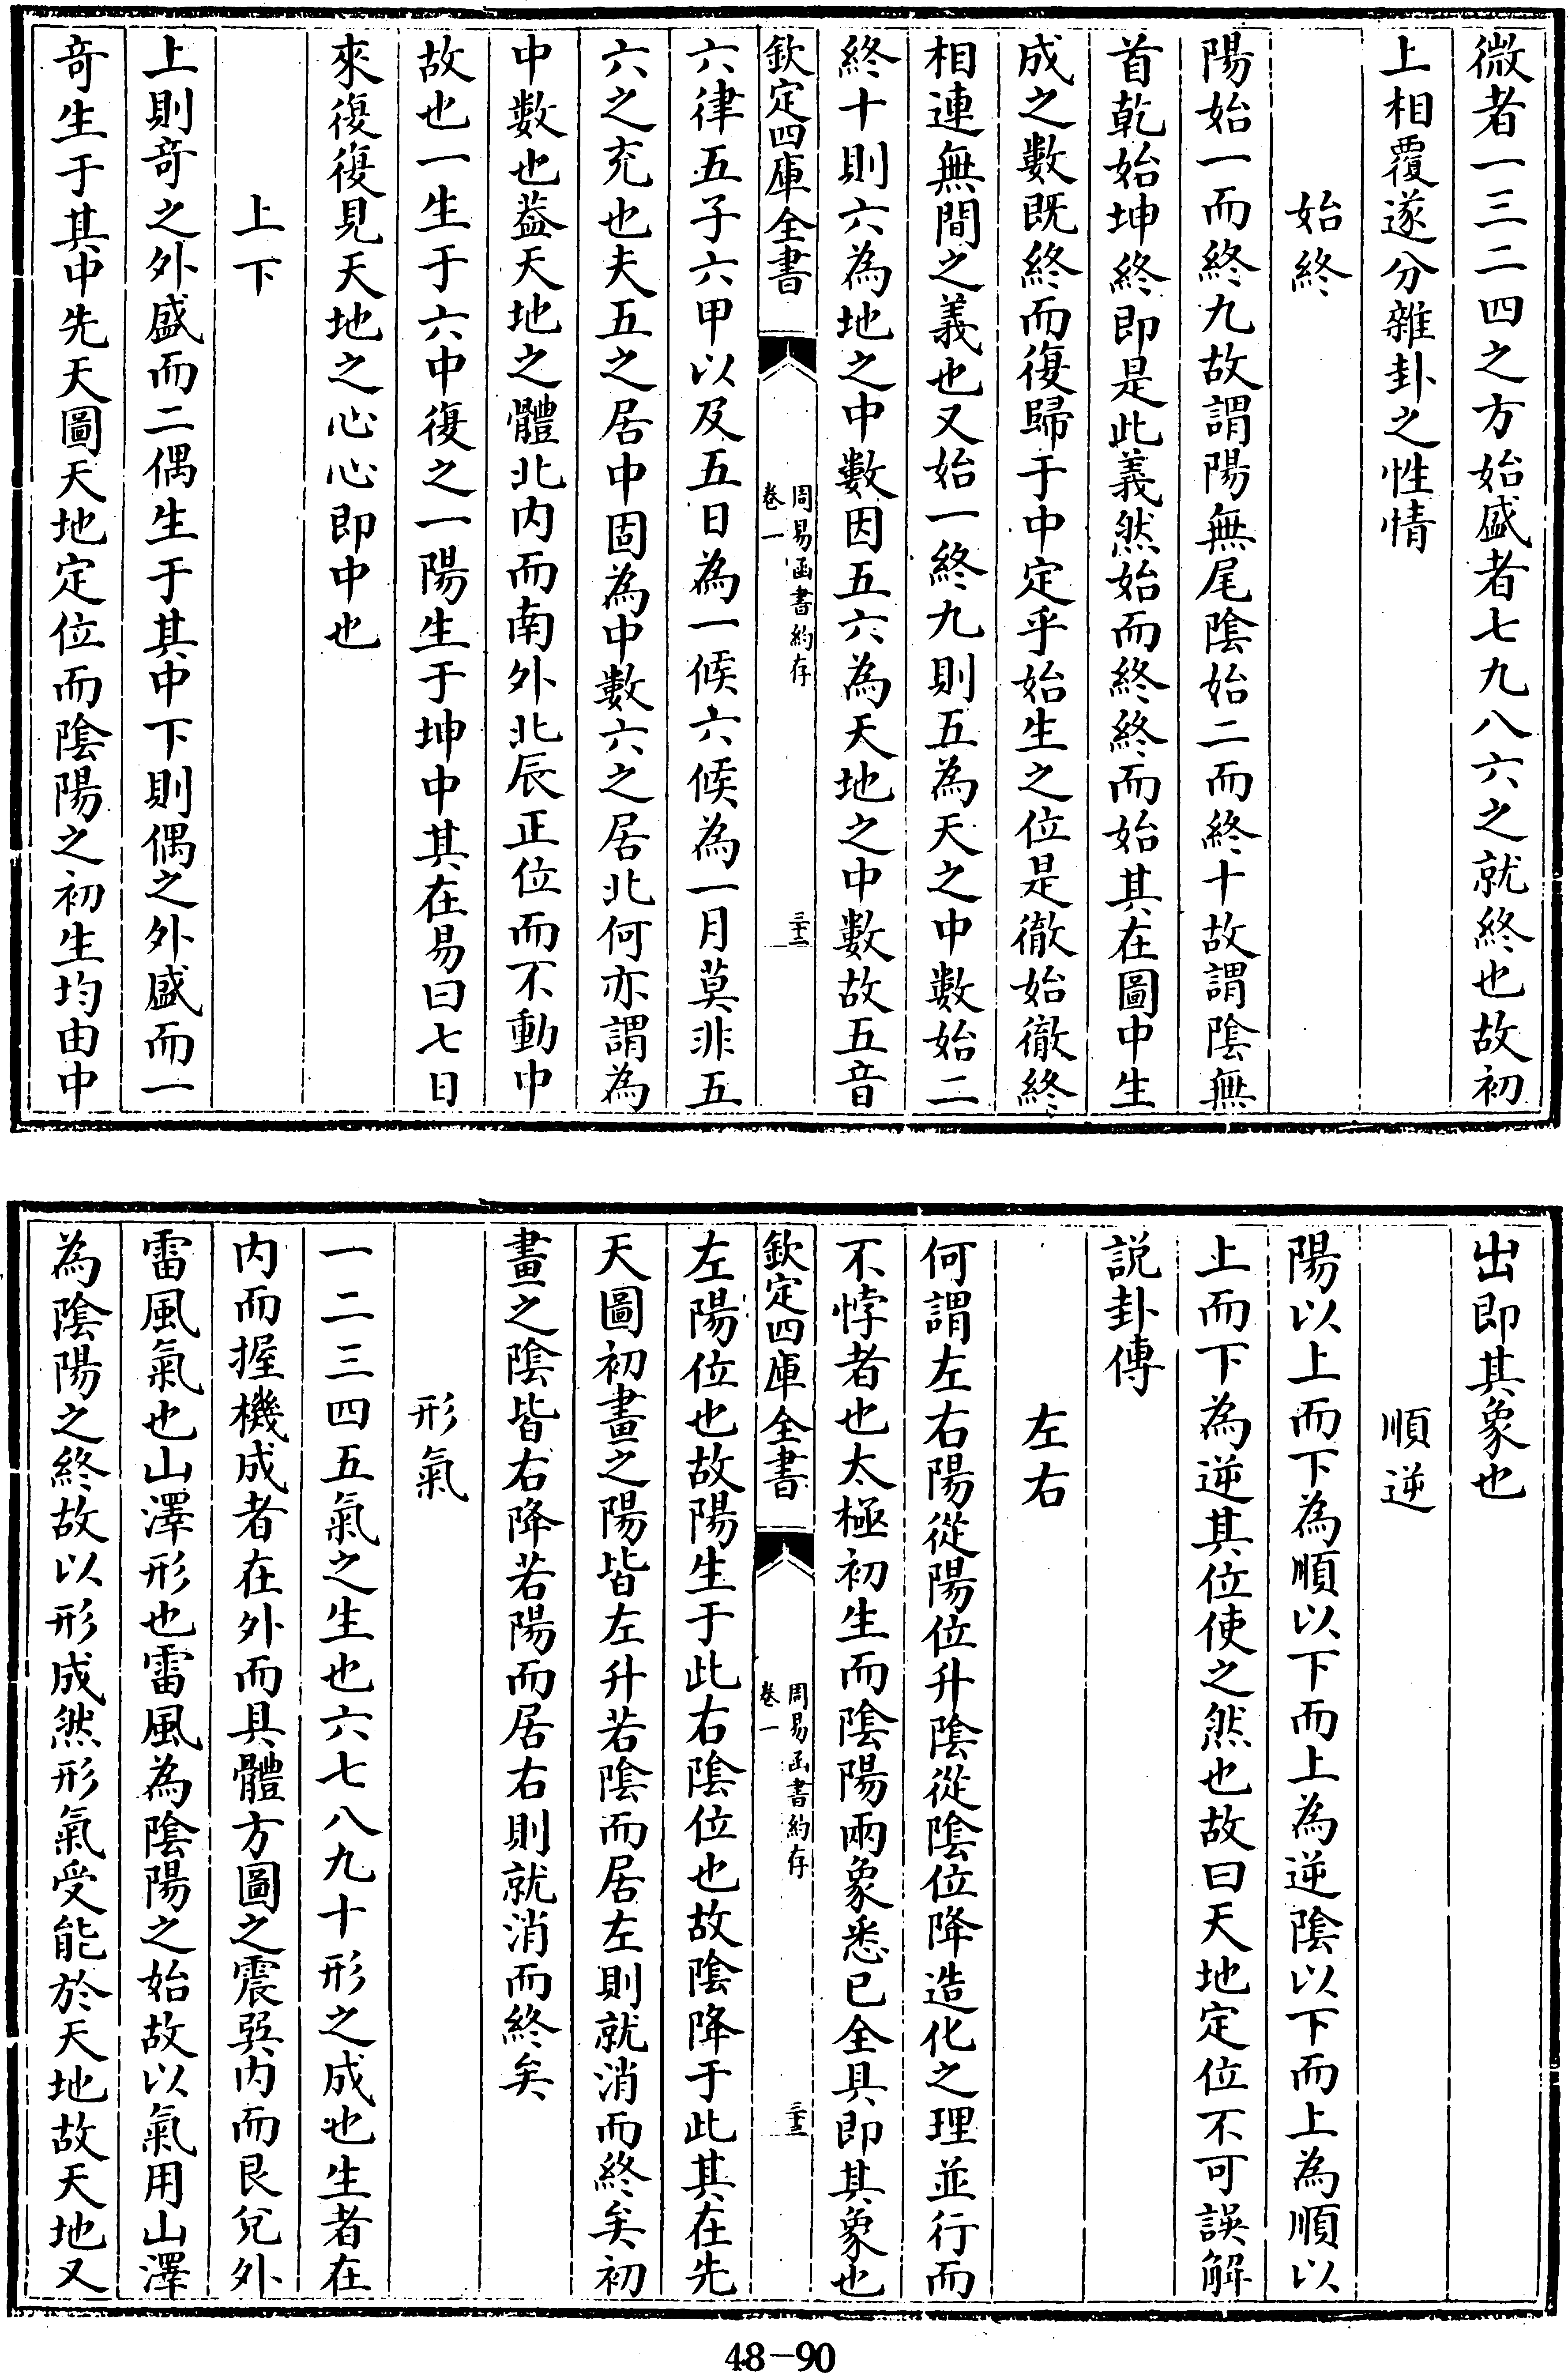 微者一三二四之方始盛者七九八六之就終也故初
上相覆遂分雜卦之性情
始終
陽始一而終九故謂陽無尾陰始二而終十故謂陰無
首乾始坤終即是此義然始而終終而始其在圖中生
成之數既終而復歸于中定乎始生之位是徹始徹終
相連無間之義也又始一終九則五為天之中數始二
終十則六為地之中數因五六為天地之中數故五音
欽定四庫全書
周易函書約存
卷一
三十二
六律五子六甲以及五日為一候六候為一月莫非五
六之充也夫五之居中固為中數六之居北何亦謂為
中數也葢天地之體北内而南外北辰正位而不動中
故也一生于六中復之一陽生于坤中其在易曰七日
來復復見天地之心心即中也
上下
上則竒之外盛而二偶生于其中下則偶之外盛而一
竒生于其中先天圖天地定位而陰陽之初生均由中
出即其象也
順逆
陽以上而下為順以下而上為逆陰以下而上為順以
上而下為逆其位使之然也故曰天地定位不可誤解
説卦傳
左右
何謂左右陽從陽位升陰從陰位降造化之理並行而
不悖者也太極初生而陰陽兩象悉已全具即其象也
欽定四庫全書
周易函書約存
卷一
三十三
左陽位也故陽生于此右陰位也故陰降于此其在先
天圖初畫之陽皆左升若陰而居左則就消而終矣初
畫之陰皆右降若陽而居右則就消而終矣
形氣
一二三四五氣之生也六七八九十形之成也生者在
内而握機成者在外而具體方圖之震巽内而艮兌外
雷風氣也山澤形也雷風為陰陽之始故以氣用山澤
為陰陽之終故以形成然形氣受能於天地故天地又
48-90